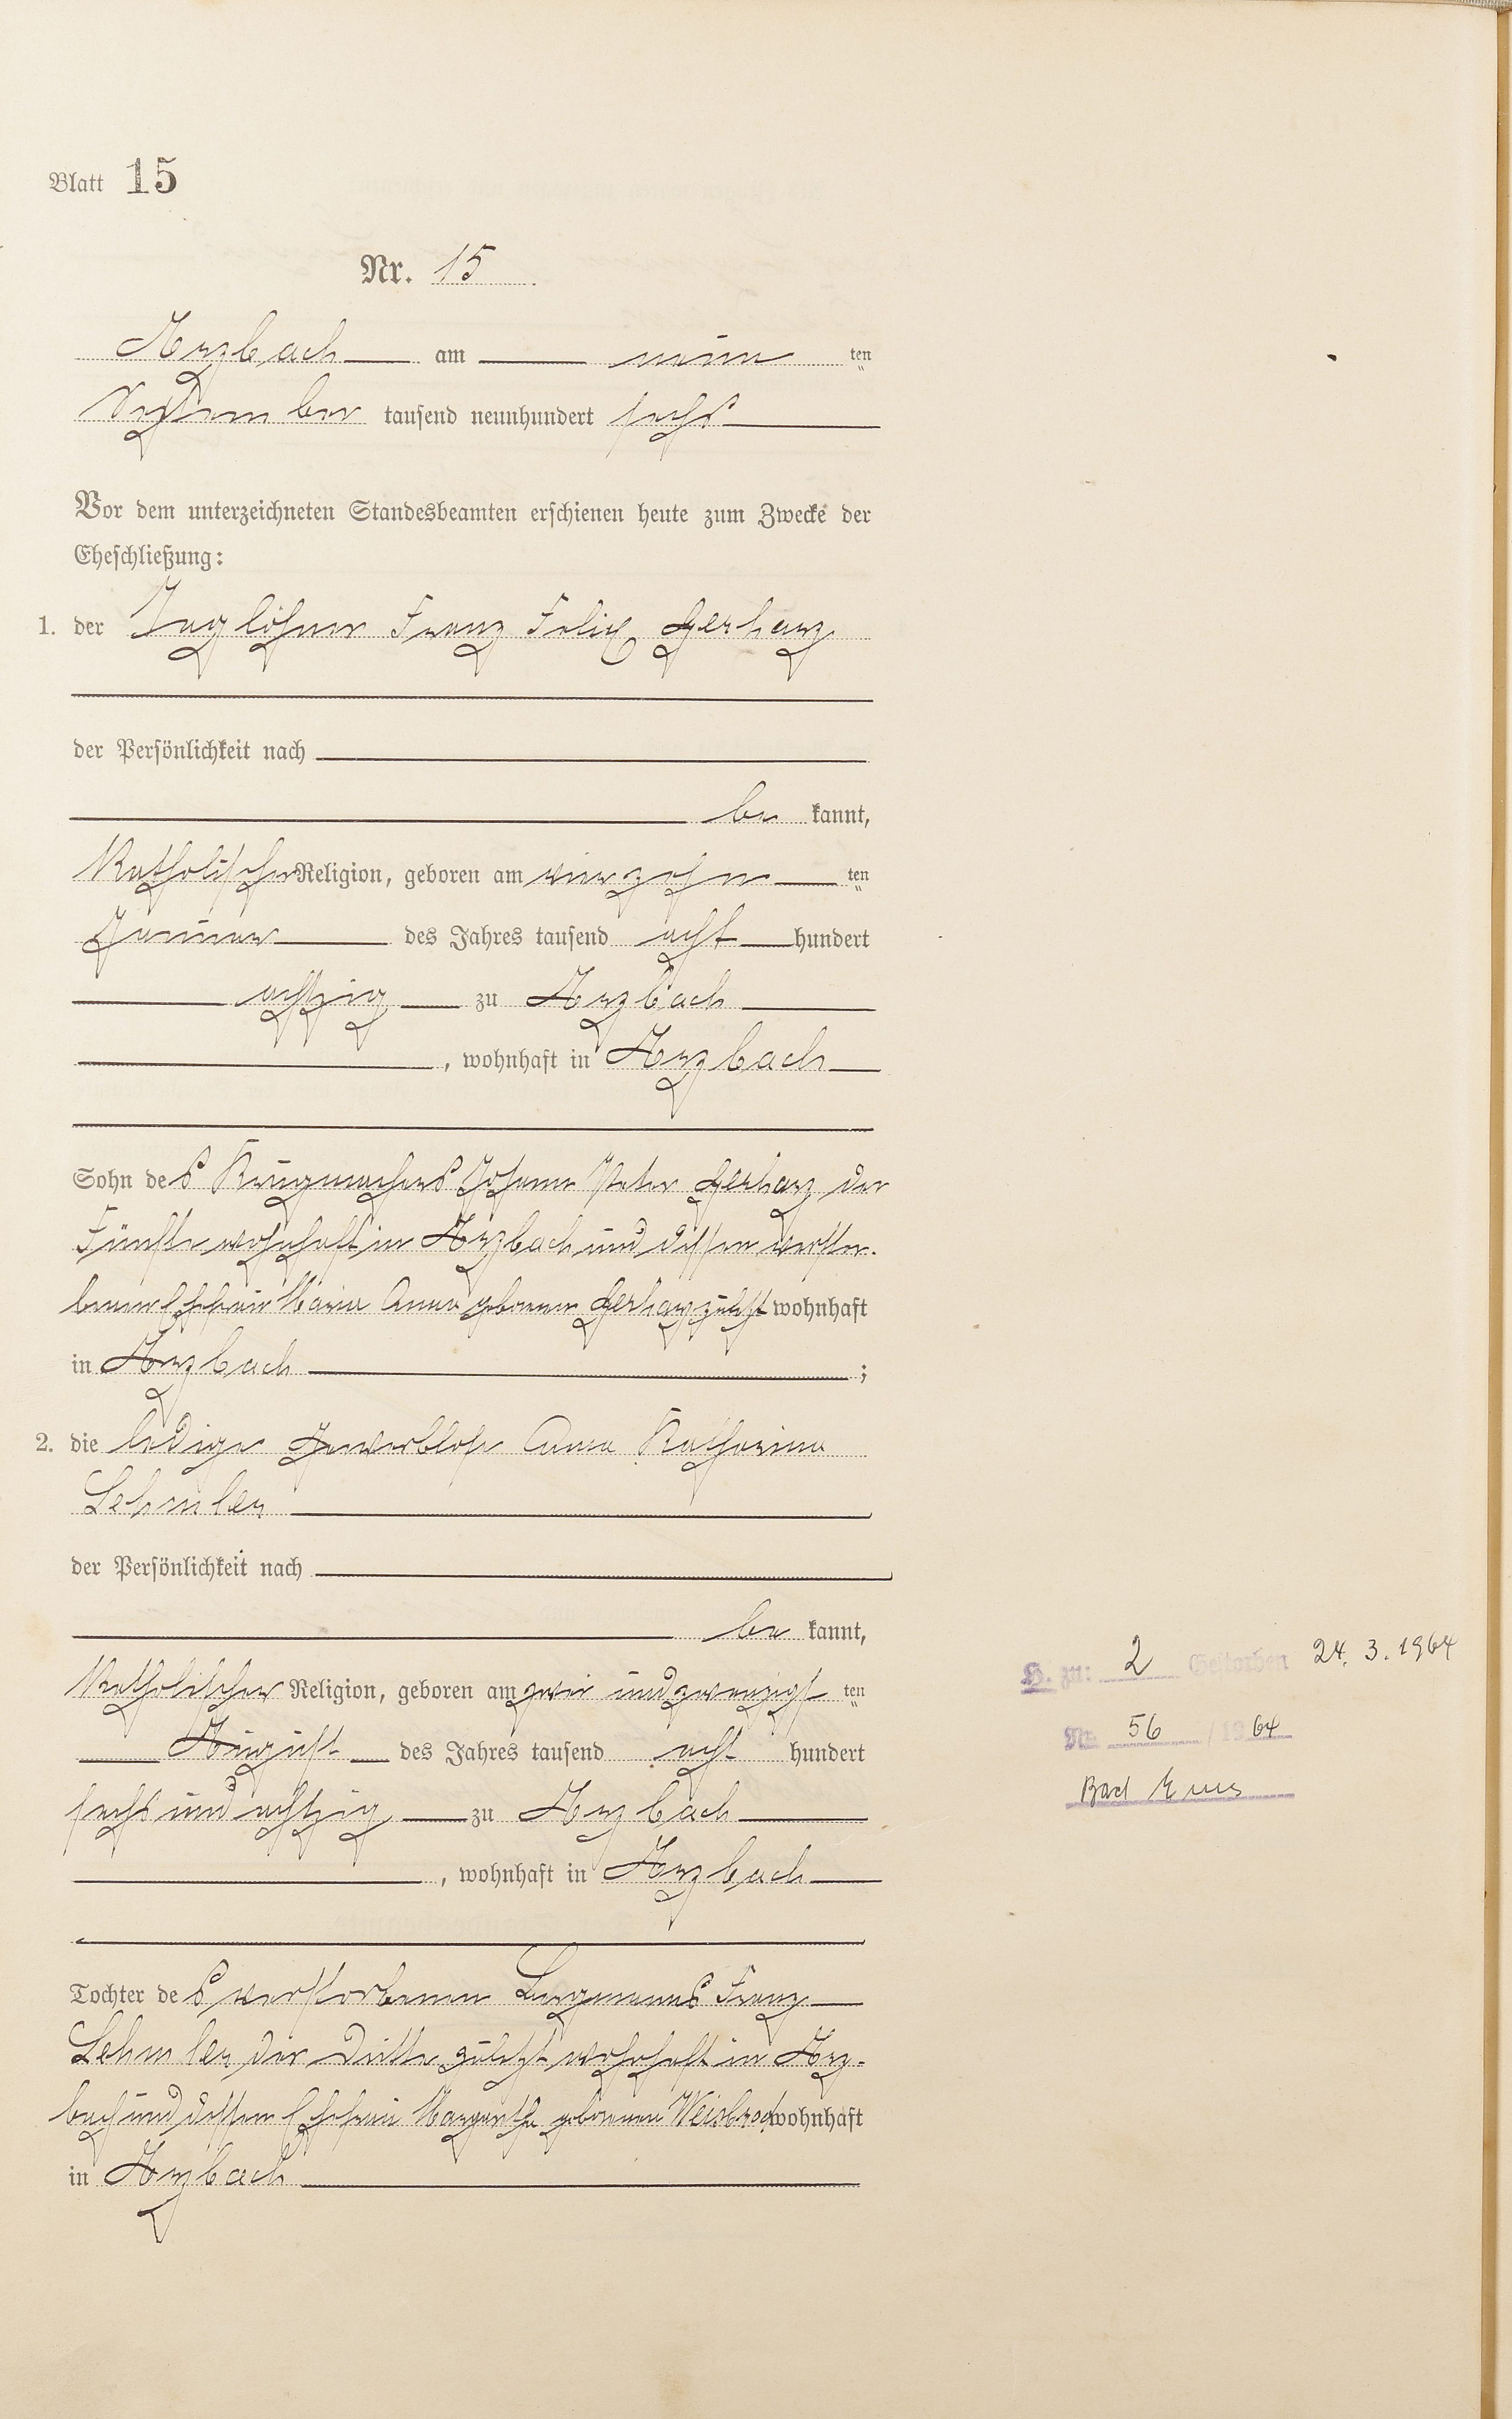 Blatt 15
Nr. 15
Arzbach am neun ten
September tausend neunhundert sechs
Vor dem unterzeichneten Standesbeamten erschienen heute zum Zwecke der
Eheschließung:
1. der Taglöhner Franz Felix Gerharz
der Persönlichkeit nach
be kannt,
Katholischer Religion, geboren am vierzehn ten
Januar des Jahres tausend acht hundert
achtzig zu Arzbach
, wohnhaft in Arzbach
Sohn des Krugmachers Johann Peter Gerharz der
Fünfte wohnhaft in Arzbach und dessen verstor-
benen Ehefrau Maria Anna geborenen Gerharz zuletzt wohnhaft
in Arzbach ;
2. die ledige gewerblose Anna Katharina
Lehmler
der Persönlichkeit nach
be kannt,
Katholischer Religion, geboren am zwei und zwanzigst ten
August des Jahres tausend acht hundert
sechs und achtzig zu Arzbach
, wohnhaft in Arzbach
Tochter des verstorbenen Bergmanns Franz
Lehmler der Dritte zuletzt wohnhaft in Arz-
bach und dessen Ehefrau Margarethe geborenen Weisbrod wohnhaft
in Arzbach
H. zu: 2 Gestorben 24.3.1964
Nr. 56 / 1964
Bad Ems